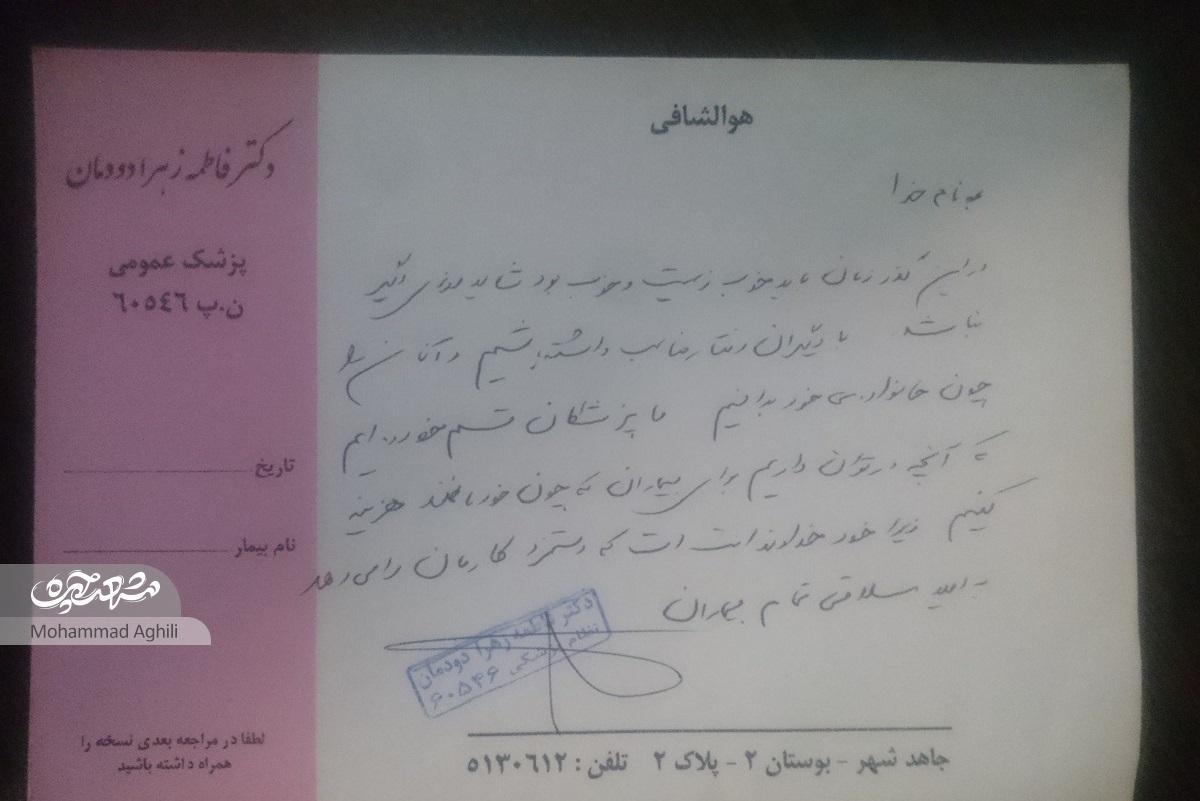 هوالشافی
به نام خدا
در این گذر زمان باید خوب زیست و خوب بود شاید روزی دگیر
نباشد با دگیران رفتار مناسب داشته باشیم و آنان را
چون خانواده ی خود بدانیم ما پزشکان قسم خورده ایم
که آنچه در توان داریم برای بیماران که چون خود ما هستند هزینه
کنیم زیرا خود خداوند است که دستمزد کارمان را می دهد
به امید سلامتی تمام بیماران
دکتر فاطمه زهرا دودمان
نظام پزشکی ۶۰۵۴۶
جاهد شهر - بوستان ۲ - پلاک ۲ تلفن : ۵۱۳۰۶۱۲
دکتر فاطمه زهرا دودمان
پزشک عمومی
ن.پ ٦٠٥٤٦
تاریخ
نام بیمار
لطفا در مراجعه بعدی نسخه را
همراه داشته باشید
شهرآرا
Mohammad Aghili